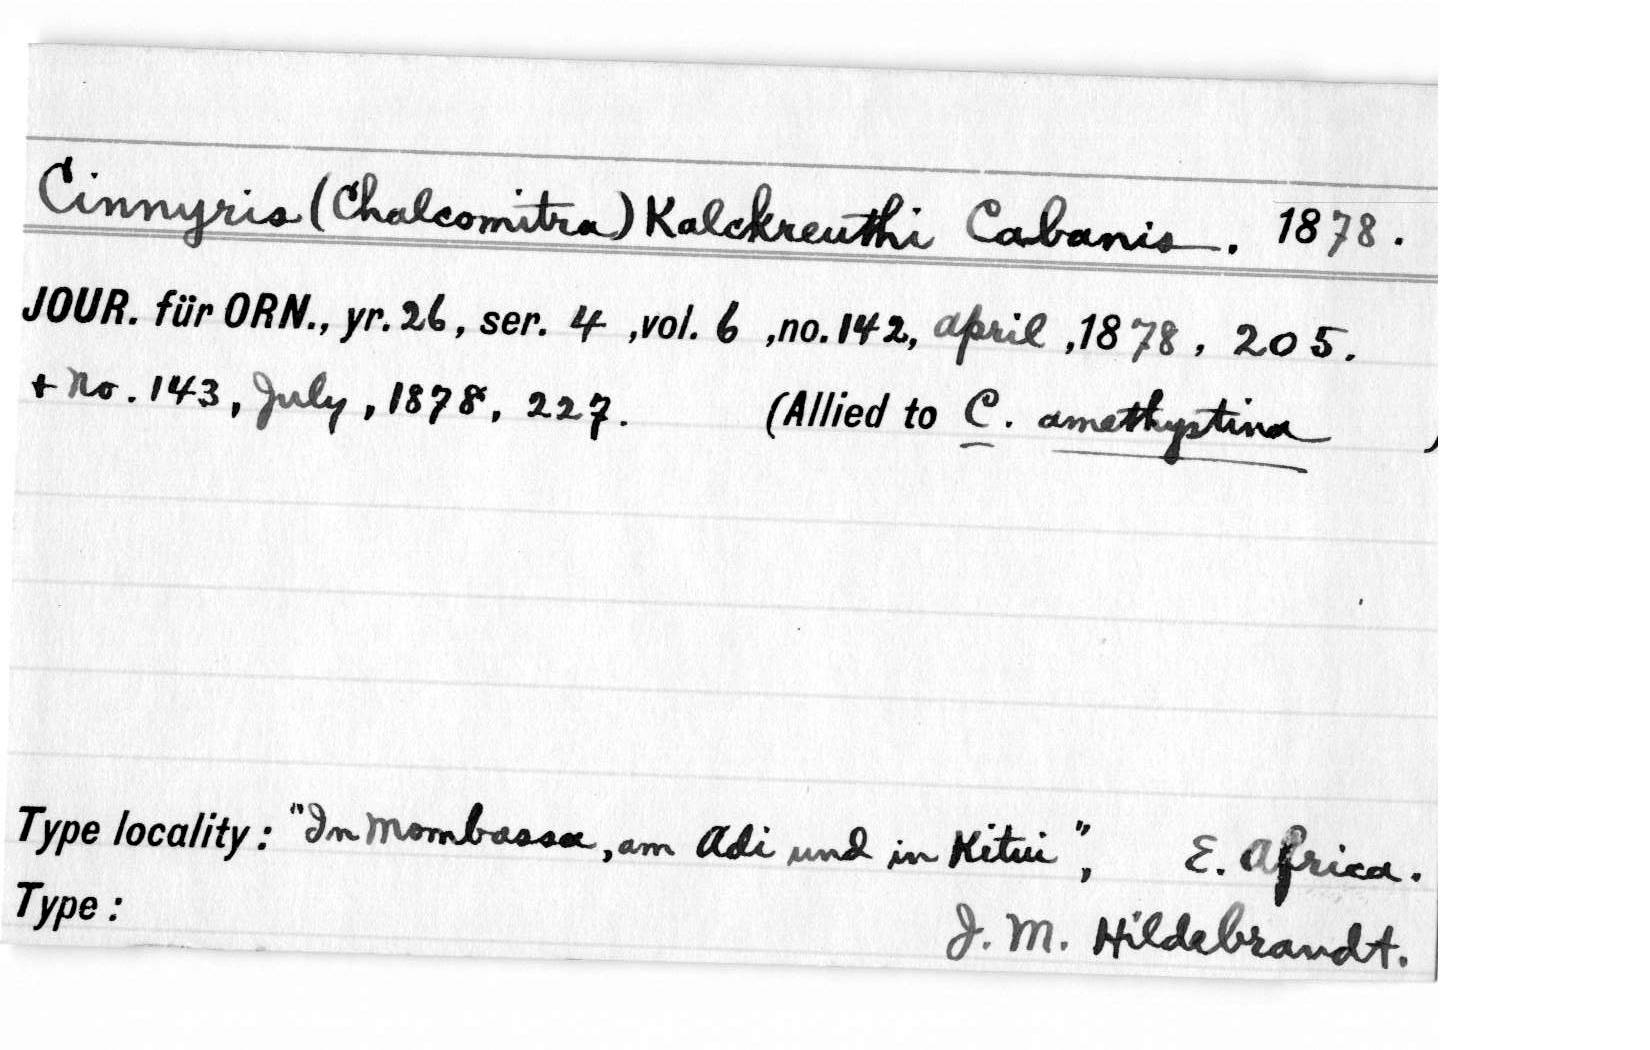 Cinnyris (Chalcomitra) Kalckreuthi Cabanis. 1878.
JOUR. für ORN., yr. 26, ser. 4, vol. 6, no. 142, April, 1878, 205.
+ no. 143, July, 1878, 227. (Allied to C. amethystina )
Type locality: "In Mombassa, am Adi und in Kitui", E. Africa.
Type: J. M. Hildebrandt.